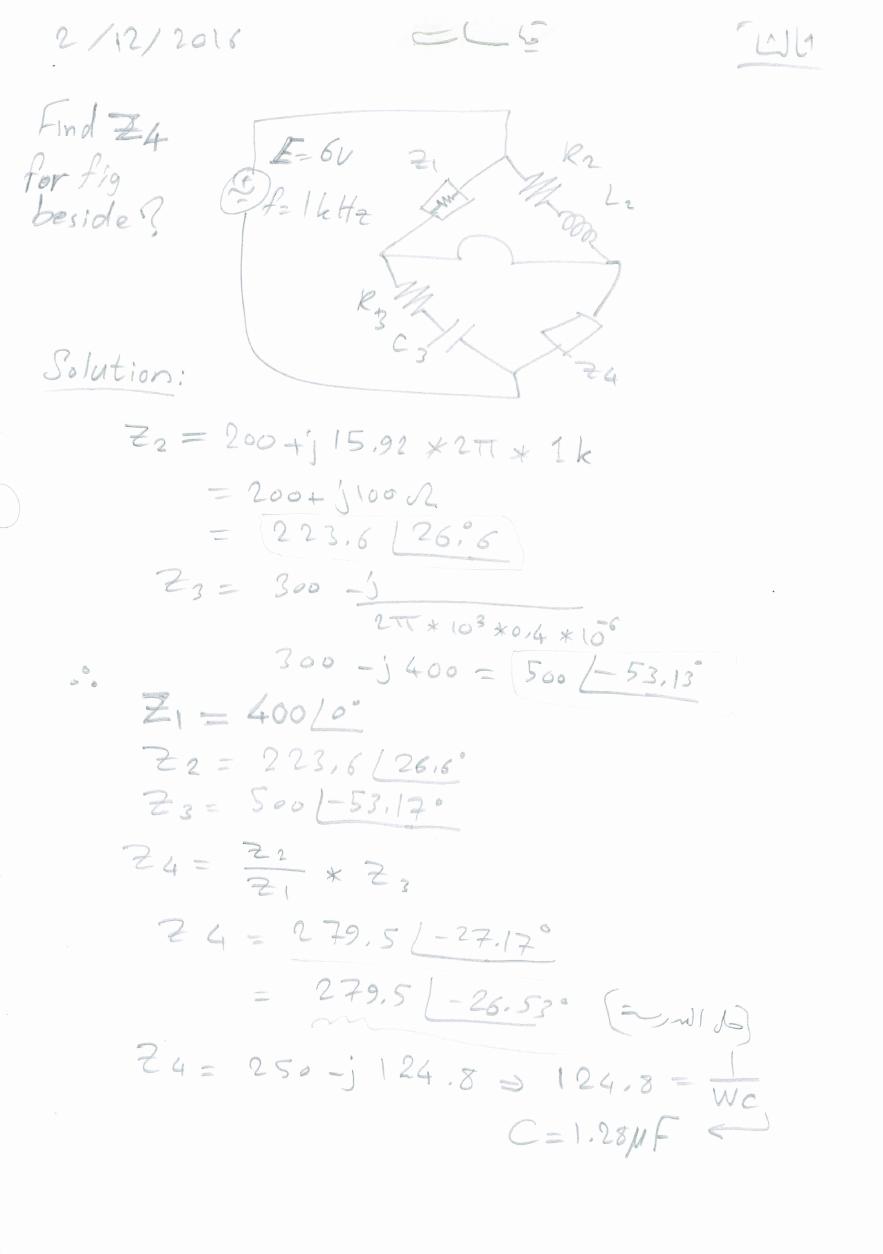 2/12/2016 قياسات ثالث
Find Z4
for fig
beside?
E=6v
f=1kHz
Z1
R2
L2
R3
C3
Z4
Solution:
Z2 = 200+j 15.92 *2π * 1k
= 200+j100Ω
= 223.6 ∠26.°6
Z3 = 300 -j/(2π * 10³ *0.4 * 10⁻⁶)
∴ 300 -j 400 = 500 ∠-53.13°
Z1 = 400∠0°
Z2 = 223.6 ∠26.6°
Z3 = 500 ∠-53.17°
Z4 = Z2/Z1 * Z3
Z4 = 279.5 ∠-27.17°
= 279.5 ∠-26.53° (حل المدرسة)
Z4 = 250 -j 124.8 ⇒ 124.8 = 1/WC
C=1.28μF